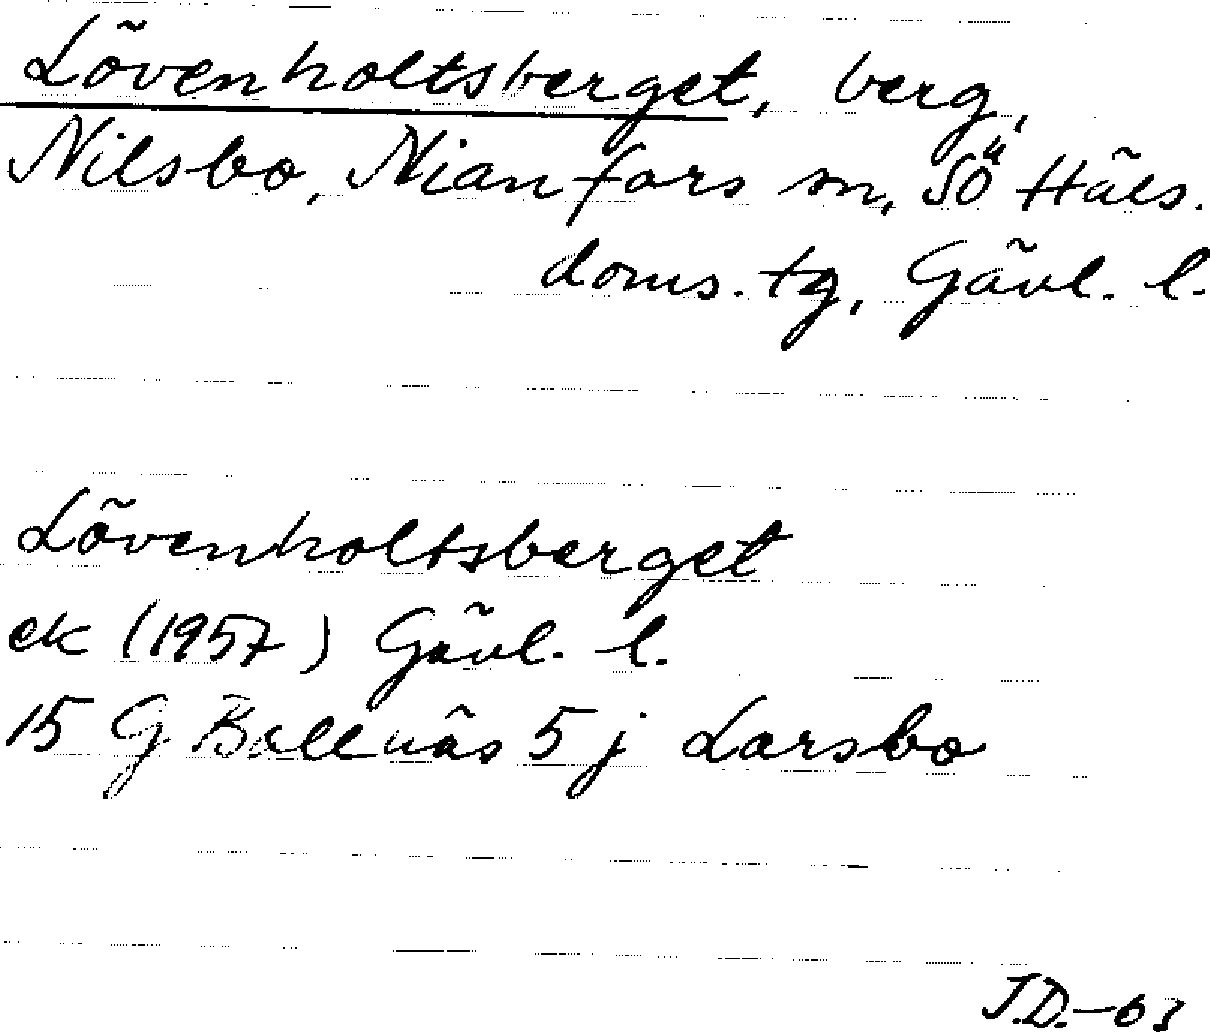 Lövenholtsberget, berg,
Nilsbo, Nianfors sn, SÖ Häls.
doms. tg, Gävl. l.
Lövenholtsberget
ek (1957) Gävl. l.
15 G Bollnäs 5 j Larsbo
J.D.-63